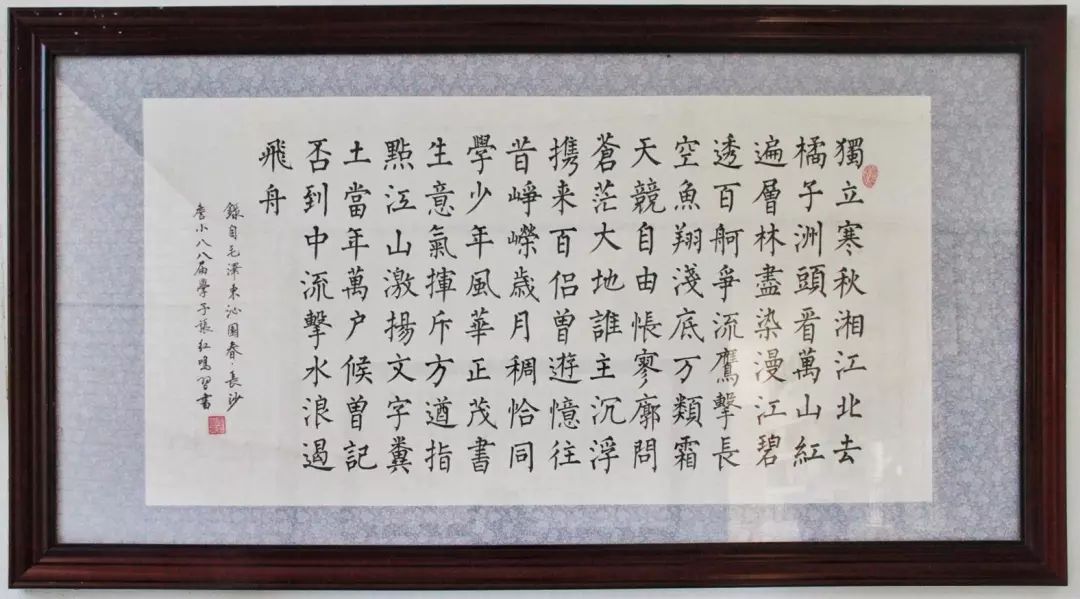 獨立寒秋湘江北去
橘子洲頭看萬山紅
遍層林盡染漫江碧
透百舸爭流鷹擊長
空魚翔淺底万類霜
天競自由悵寥廓問
蒼茫大地誰主沉浮
携来百侣曾遊憶往
昔崢嶸歲月稠恰同
學少年風華正茂書
生意氣揮斥方遒指
點江山激揚文字糞
土當年萬户候曾記
否到中流擊水浪遏
飛舟
錄自毛澤東沁園春長沙
小八八届學子張红鳴習書